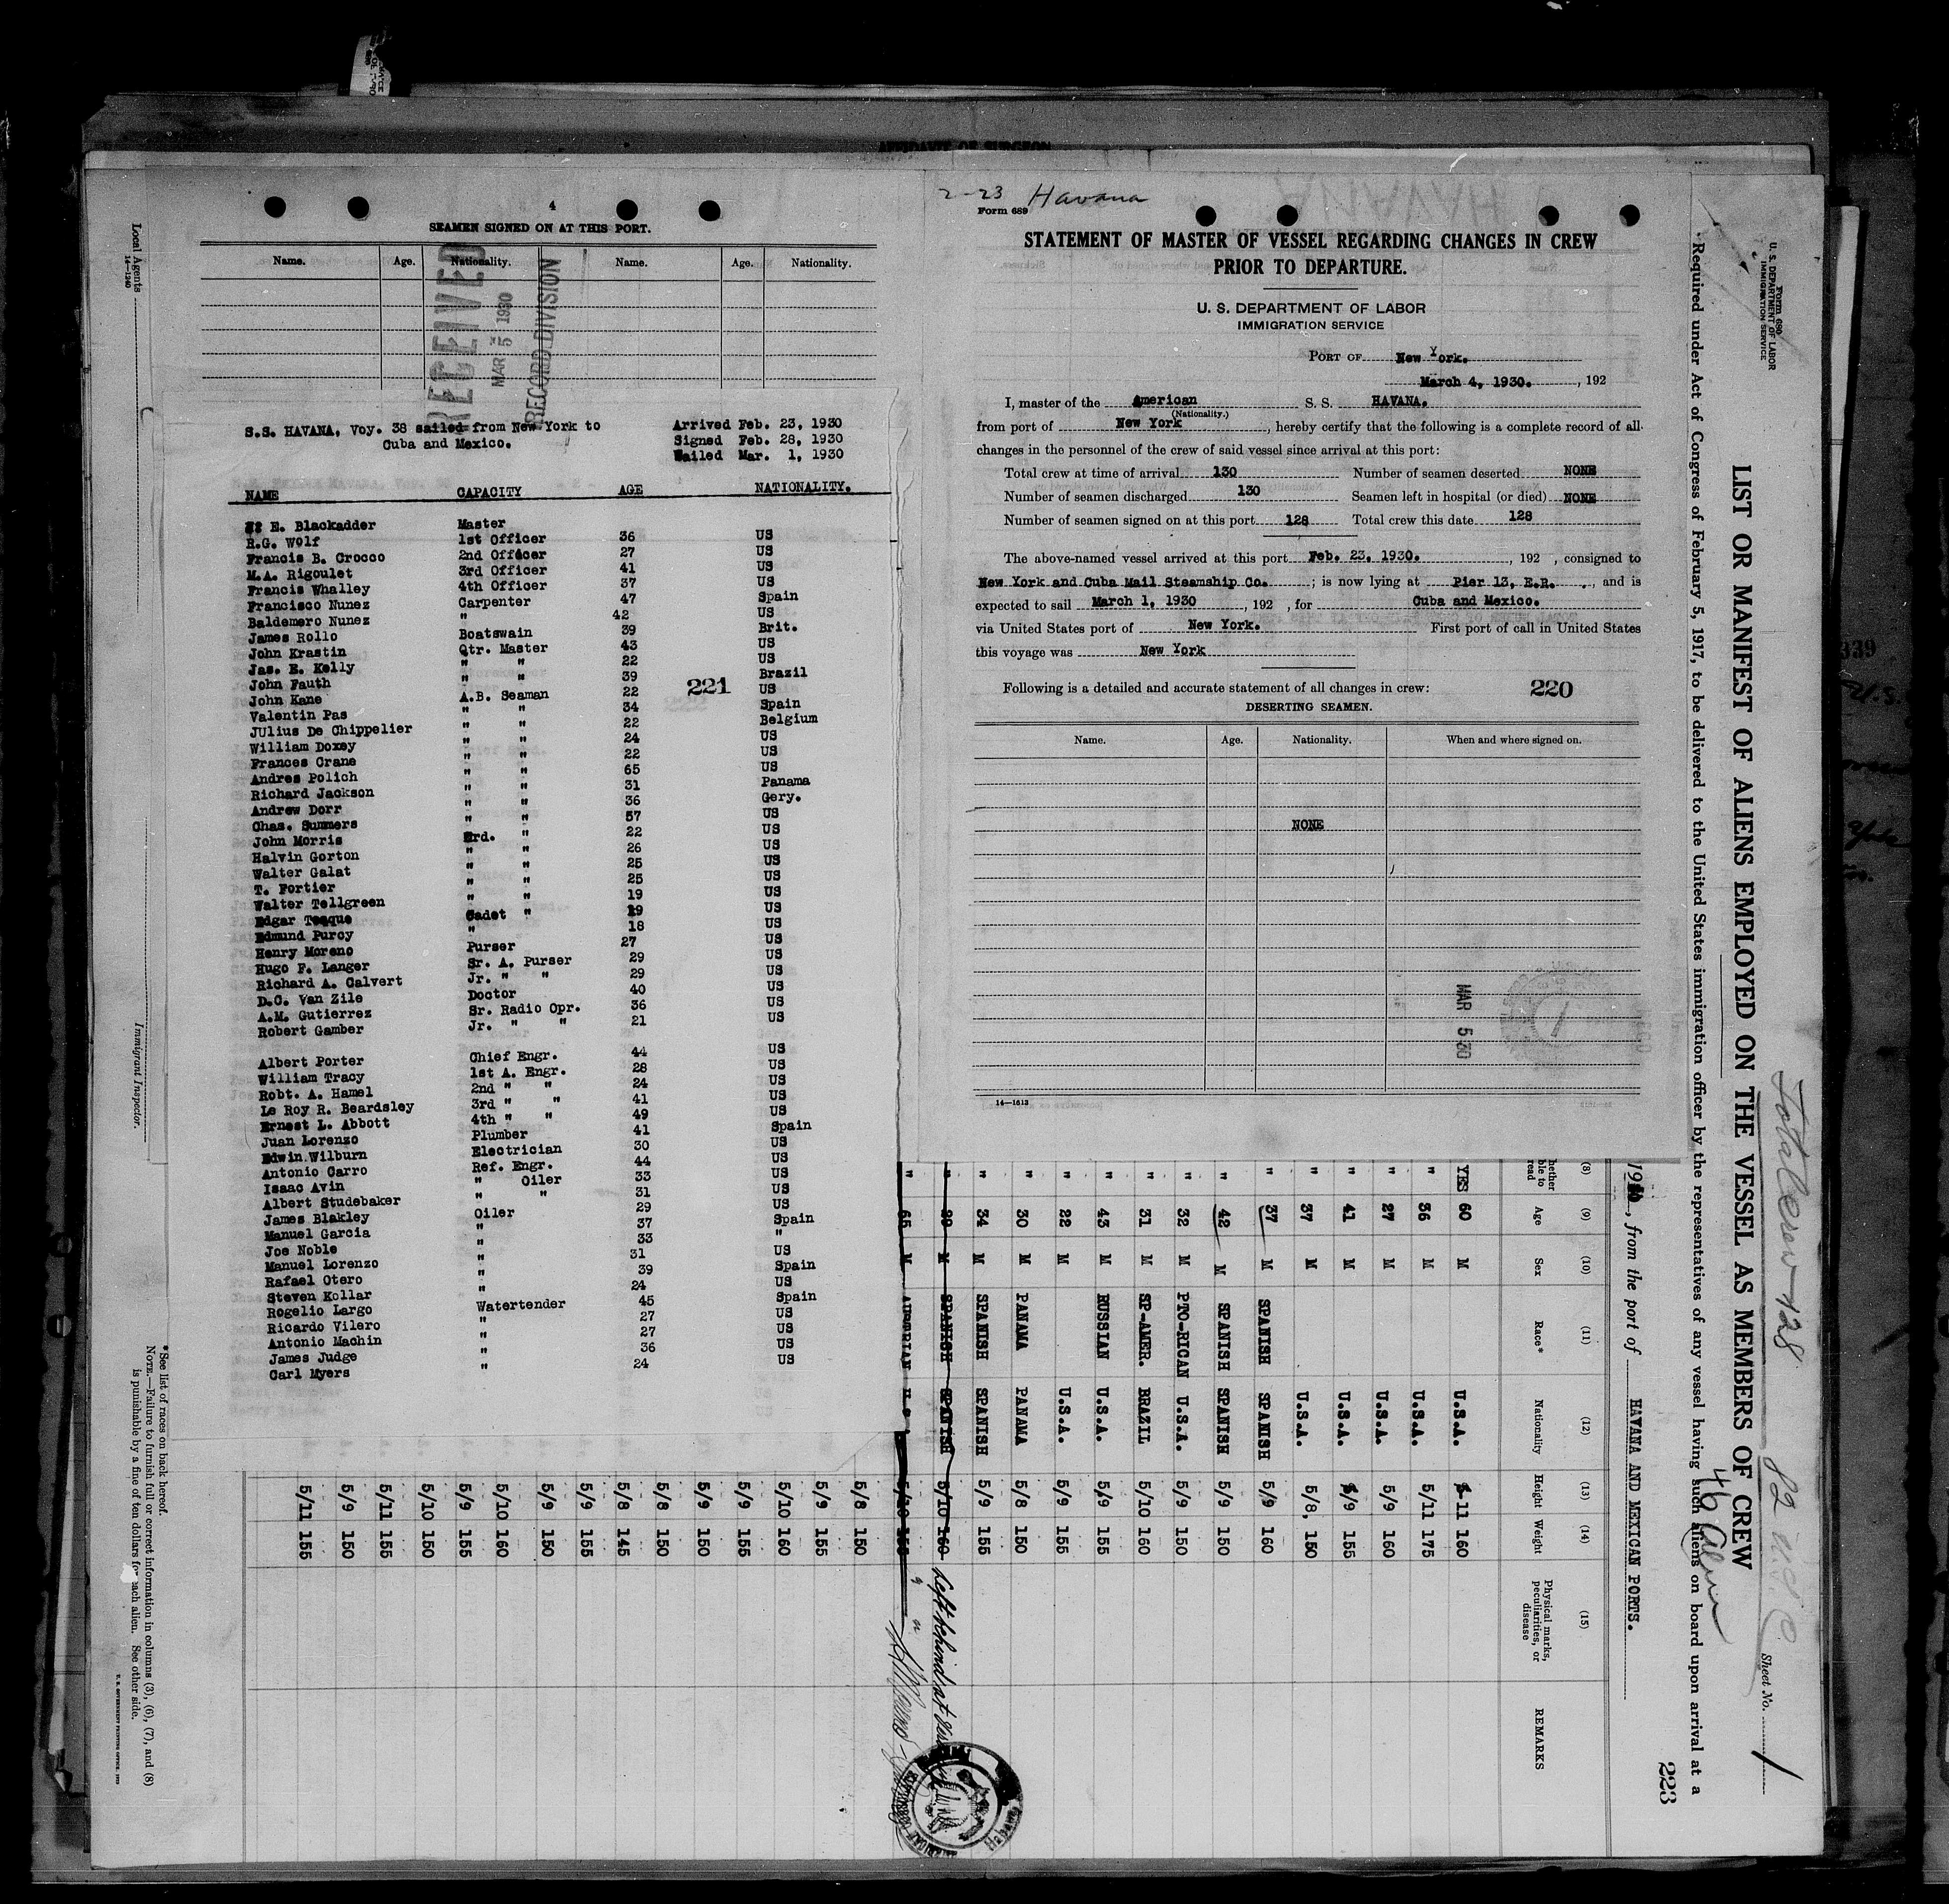 4
SEAMEN SIGNED ON AT THIS PORT.
Name. Age. Nationality. Name. Age. Nationality.
RECEIVED
MAR 5 1930
RECORD DIVISION
S.S. HAVANA, Voy. 38 sailed from New York to
Cuba and Mexico.
Arrived Feb. 23, 1930
Signed Feb. 28, 1930
Sailed Mar. 1, 1930
NAME CAPACITY AGE NATIONALITY.
E. Blackadder Master
R.G. Wolf 1st Officer 36 US
Francis B. Crocco 2nd Officer 27 US
M.A. Rigoulet 3rd Officer 41 US
Francis Whalley 4th Officer 37 US
Francisco Nunez Carpenter 47 Spain
Baldemero Nunez " 42 US
James Rollo Boatswain 39 Brit.
John Krastin Qtr. Master 43 US
Jas. E. Kelly " " 22 US
John Fauth " " 39 Brazil
John Kane A.B. Seaman 22 US
Valentin Pas " " 34 Spain
JUlius De Chippelier " " 22 Belgium
William Doxey " " 24 US
Frances Crane " " 22 US
Andres Polich " " 65 US
Richard Jackson " " 31 Panama
Andrew Dorr " " 36 Gery.
Chas. Summers " " 57 US
John Morris Ord. " 22 US
Halvin Gorton " " 26 US
Walter Galat " " 25 US
T. Fortier " " 25 US
Walter Tellgreen " " 19 US
Edgar Teaque Cadet " 19 US
Edmund Purcy " 18 US
Henry Moreno Purser 27 US
Hugo F. Langer Sr. A. Purser 29 US
Richard A. Calvert Jr. " " 29 US
D.C. Van Zile Doctor 40 US
A.M. Gutierrez Sr. Radio Opr. 36 US
Robert Gamber Jr. " " 21 US
Albert Porter Chief Engr. 44 US
William Tracy 1st A. Engr. 28 US
Robt. A. Hamel 2nd " " 24 US
Le Roy R. Beardsley 3rd " " 41 US
Ernest L. Abbott 4th " " 49 US
Juan Lorenzo Plumber 41 Spain
Edwin Wilburn Electrician 30 US
Antonio Carro Ref. Engr. 44 US
Isaac Avin " Oiler 33 US
Albert Studebaker " " 31 US
James Blakley Oiler 29 US
Manuel Garcia " 37 Spain
Joe Noble " 33 "
Manuel Lorenzo " 31 US
Rafael Otero " 39 Spain
Steven Kollar " 24 US
Rogelio Largo Watertender 45 Spain
Ricardo Vilero " 27 US
Antonio Machin " 27 US
James Judge " 36 US
Carl Myers " 24 US
221
2-23 Havana
Form 689
STATEMENT OF MASTER OF VESSEL REGARDING CHANGES IN CREW
PRIOR TO DEPARTURE.
U. S. DEPARTMENT OF LABOR
IMMIGRATION SERVICE
PORT OF New York.
March 4, 1930. , 192
I, master of the American S. S. HAVANA.
(Nationality.)
from port of New York , hereby certify that the following is a complete record of all
changes in the personnel of the crew of said vessel since arrival at this port:
Total crew at time of arrival 130 Number of seamen deserted NONE
Number of seamen discharged 130 Seamen left in hospital (or died) NONE
Number of seamen signed on at this port 128 Total crew this date 128
The above-named vessel arrived at this port Feb. 23, 1930. , 192 , consigned to
New York and Cuba Mail Steamship Co. ; is now lying at Pier 13, E.R. , and is
expected to sail March 1, 1930 , 192 , for Cuba and Mexico.
via United States port of New York. First port of call in United States
this voyage was New York
Following is a detailed and accurate statement of all changes in crew: 220
DESERTING SEAMEN.
Name. Age. Nationality. When and where signed on.
NONE
MAR 5 30
14—1613
Form 680
U. S. DEPARTMENT OF LABOR
IMMIGRATION SERVICE
LIST OR MANIFEST OF ALIENS EMPLOYED ON THE VESSEL AS MEMBERS OF CREW
Sheet No. 1
Total Crew 128
82 U.S.C.
46 Alien
Required under Act of Congress of February 5, 1917, to be delivered to the United States immigration officer by the representatives of any vessel having such aliens on board upon arrival at a
223
, from the port of HAVANA AND MEXICAN PORTS.
(8) (9) (10) (11) (12) (13) (14) (15)
Age Sex Race* Nationality Height Weight Physical marks, peculiarities, or disease REMARKS
YES 60 M U.S.A. 11 160
" 36 M U.S.A. 5/11 175
" 27 M U.S.A. 5/9 160
" 41 M U.S.A. 5/9 155
" 37 M U.S.A. 5/8, 150
" 37 M SPANISH SPANISH 5/9 160
" 42 M SPANISH SPANISH 5/9 150
" 32 M PTO-RICAN U.S.A. 5/9 150
" 31 M SP-AMER. BRAZIL 5/10 160
" 43 M RUSSIAN U.S.A. 5/9 155
" 22 M U.S.A. 5/9 155
" 30 M PANAMA PANAMA 5/8 150
" 34 M SPANISH SPANISH 5/9 155
" M SPANISH SPANISH 5/10 160 Left behind at
" 65 M AUSTRIAN
5/8 150
5/9 155
5/10 160
5/9 155
5/9 150
5/8 150
5/8 145
5/9 155
5/9 150
5/10 160
5/9 155
5/10 150
5/11 155
5/9 150
5/11 155
*See list of races on back hereof.
NOTE.—Failure to furnish full or correct information in columns (3), (6), (7), and (8)
is punishable by a fine of ten dollars for each alien. See other side.
Local Agents
14—1240
Immigrant Inspector.
AFFIDAVIT OF SURGEON
339